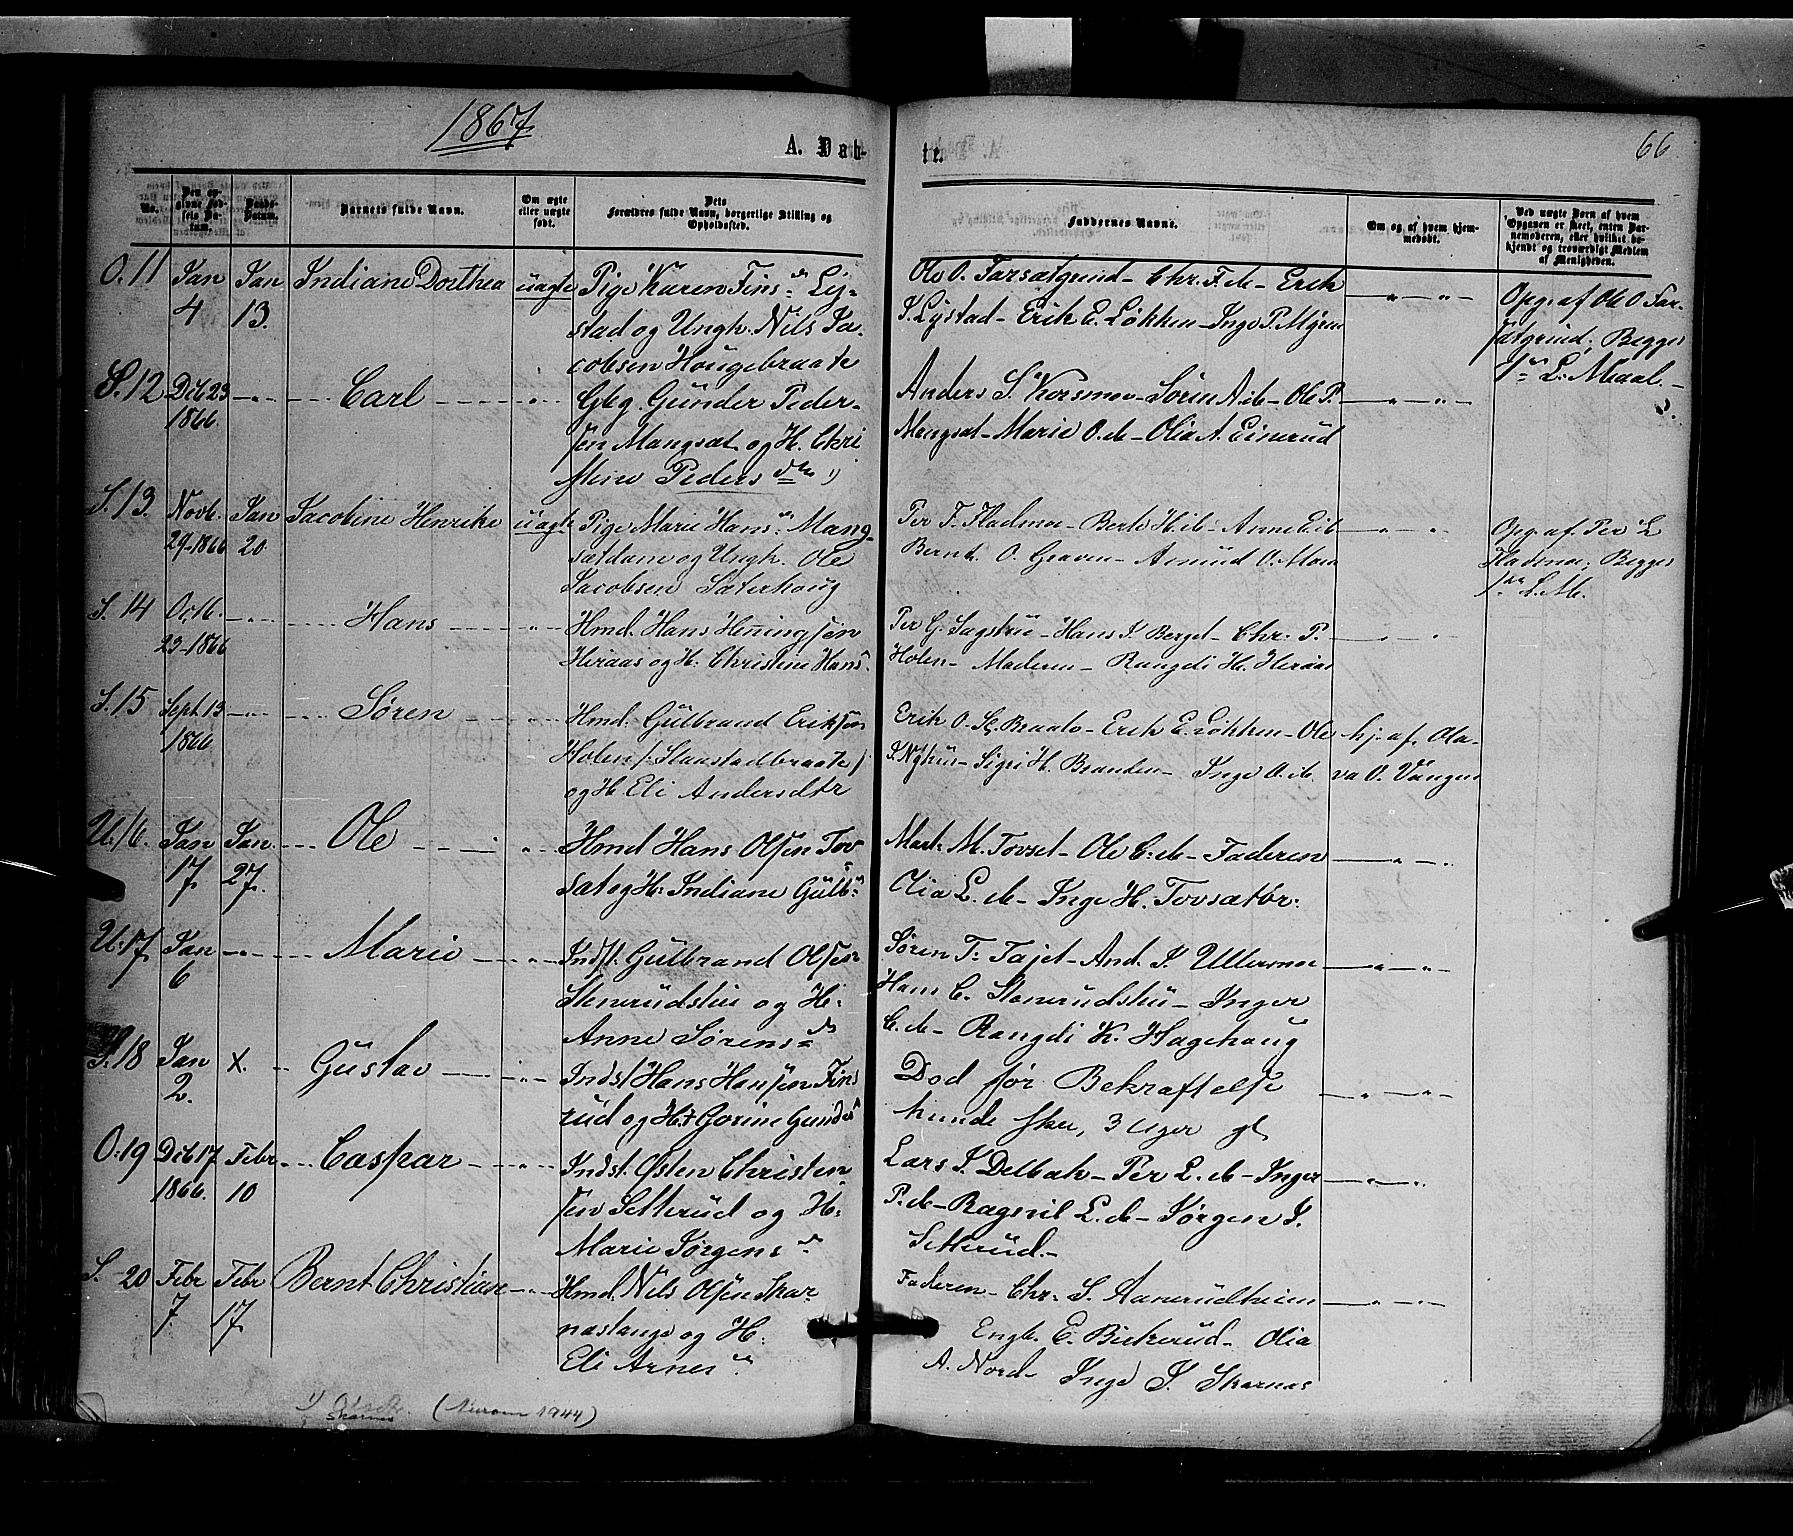 1867
A. Dåb-
te.
66
No.
Den op-
givne Fød-
sels Da-
tum.
Daabs-
Datum.
Barnets fulde Navn.
Om ægte
eller uægte
født.
Dets
Forældres fulde Navn, borgerlige Stilling og
Opholdssted.
Faddernes Navne.
Om og af hvem hjem-
medøbt.
Ved uægte Børn af hvem
Opgaven er skeet, enten Bar-
nemoderen, eller hvilket be-
kjendt og troværdigt Medlem
af Menigheden.
O. 11
Jan
4
Jan
13.
Indiane Dorthea
uægte
Pige Karen Fins
stad og Ungk. Nils Ja-
cobsen Haugebraate
Ole O. Farsætgrind - Chr. F. ib - Erik
S. Lystad - Erik E. Løkken - Inge P. Myren
Opg. af Ole O. Far-
sætgrind; Begges
1ste L: Maal -
S. 12
Dcb 23
1866
Carl
Gbg. Gunder Peder-
sen Mangsæt og H. Chri
stine Peders dtr 1)
Anders S. Korsmo - Søren A ib - Ole P.
Mangsæt - Marie O. ib - Olia A. Einerud
S. 13.
Novb.
29 - 1866
Jan
20.
Jacobine Henrike
uægte
Pige Marie Hans Mang-
sætdam og Ungk. Ole
Jacobsen Säterhoug
Per T. Fladmo - Berte H. ib - Anne E ib
Bernt O. Graven - Amund O. Moen
Opg. af Per
Fladmo; Begges
1ste L. M.
S. 14
Octb.
23 - 1866
Hans
Hmd. Hans Henningsen
Heraas og H. Christine Hans
Per G. Sagstue - Hans J. Berget - Chr. P.
Holen - Moderen - Rangdi H. Heraas
S. 15
Sept. 13
1866
Søren
Hmd. Gulbrand Eriksen
Holen /: Skaastadbraate /
og H Eli Andersdtr
Erik O. Braate - Erik E. Løkken - Ole
S. Nyhus - Sigri H. Braaten - Inge O. ib.
hj. af Ola-
va O. Vangen
U. 16.
Jan
17.
Jan
27.
Ole
Hmd Hans Olsen Tov
sæt og H: Indiane Gulb
Mart. M. Tovset - Ole C. ib - Faderen
Olia L. ib - Inge H. Tovsætør.
U. 17.
Jan
6
Marie
Indst. Gulbrand Olsen
Stenerudstue og H:
Anne Sørens
Søren T. Tajet - And. S. Ullermoe
Hans C. Stenerudstu - Inger
C. ib - Rangdi K. Hagehaug
S. 18
Jan
2.
X.
Gustav
Indst Hans Hansen Fins
rud og H: Gorine Gunders
Død før Bekræftelse
kunde skee, 3 Uger gl
O. 19
Dcb 17
1866.
Febr
10
Caspar
Indst. Østen Christen-
sen Setterud og H:
Marie Jørgens
Lars S. Delbak - Per L. ib - Inger
P. ib - Ragnil L. ib - Jørgen S.
Setterud -
S. 20
Febr
7
Febr
17.
Bernt Christian
Hmd. Nils Olsen Skar-
næstange og H:
Eli Arnes
Faderen - Chr. S. Aanerudheim
Engb. E. Bieterud - Olia
A. Nord - Inge S. Skarnæs
1)
Skarnes
1944)